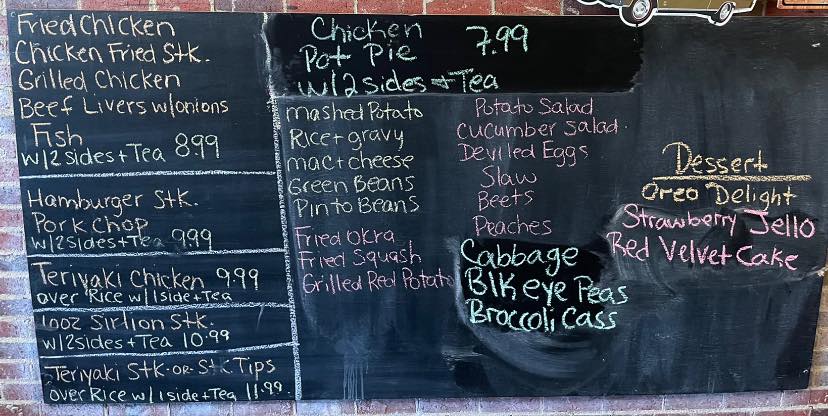 Fried Chicken
Chicken Fried Stk.
Grilled Chicken
Beef Livers w/onions
Fish
w/2 sides + Tea 8.99
Hamburger Stk.
Pork Chop
w/2 sides + Tea 9.99
Teriyaki Chicken 9.99
over Rice w/ 1 side + Tea
10oz Sirlion Stk.
w/2 sides + Tea 10.99
Teriyaki Stk -or- Stk Tips
over Rice w/ 1 side + Tea 11.99
Chicken
Pot Pie 7.99
w/2 sides + Tea
mashed Potato
Rice + gravy
mac + cheese
Green Beans
Pinto Beans
Fried Okra
Fried Squash
Grilled Red Potato
Potato Salad
Cucumber Salad
Deviled Eggs
Slaw
Beets
Peaches
Cabbage
Blk eye Peas
Broccoli Cass
Dessert
Oreo Delight
Strawberry Jello
Red Velvet Cake